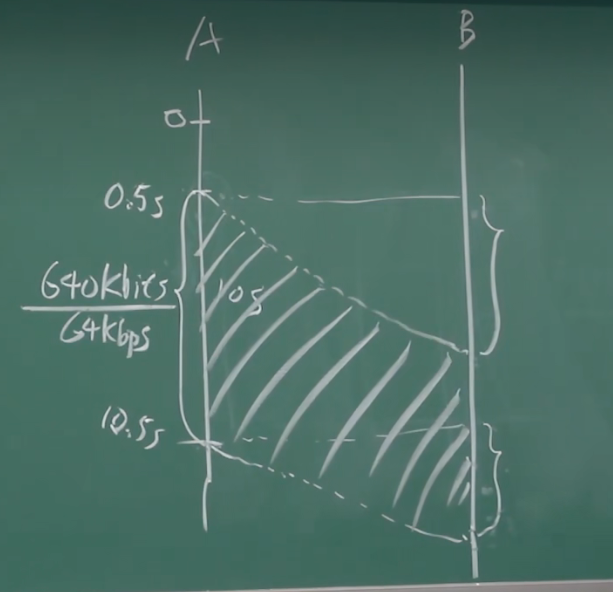 A
B
0
0.5s
640Kbits
64Kbps
10s
10.5s